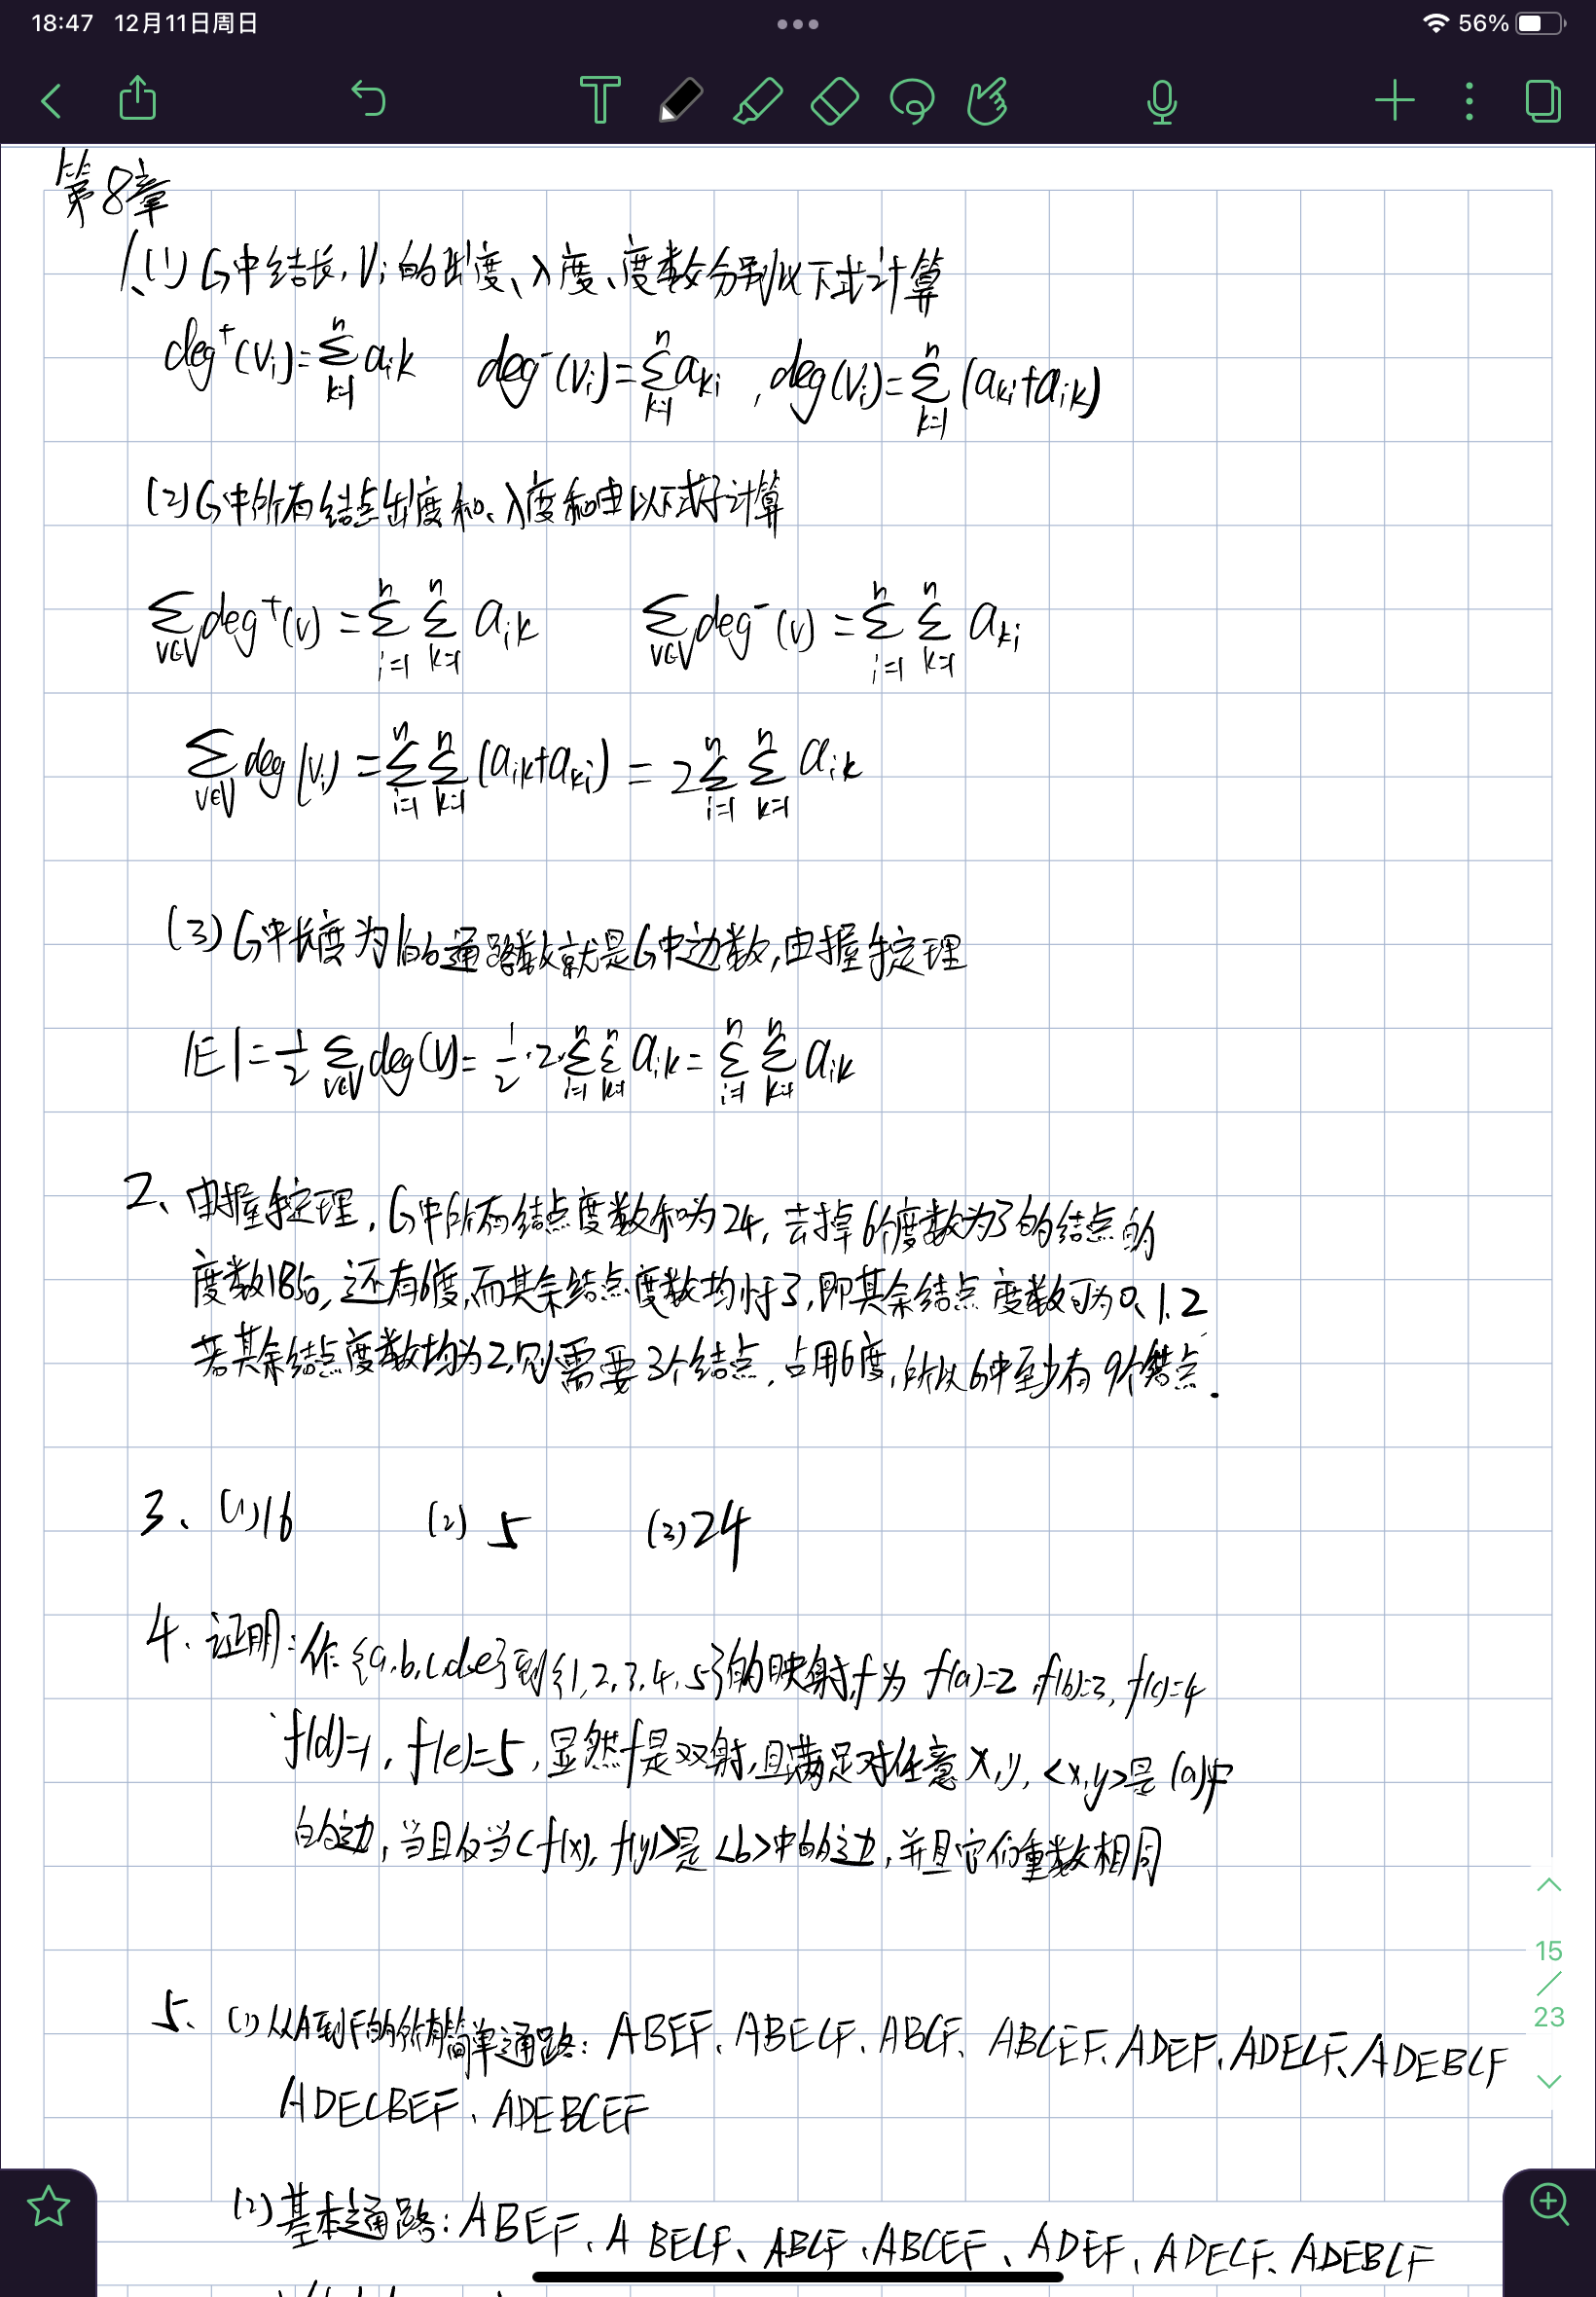 18:47 12月11日周日
56%
第8章
1、(1) G中结长, Vi的出度、入度、度数分别以下式计算
deg⁺(Vi)=∑ⁿₖ₌₁ aik deg⁻(Vi)=∑ⁿₖ₌₁ aki , deg(Vi)=∑ⁿₖ₌₁ (aki+aik)
(2) G中所有结点出度和、入度和由以下式子计算
∑v∈V deg⁺(v) =∑ⁿᵢ₌₁ ∑ⁿₖ₌₁ aik ∑v∈V deg⁻(v) =∑ⁿᵢ₌₁ ∑ⁿₖ₌₁ aki
∑v∈V deg(Vi) =∑ⁿᵢ₌₁ ∑ⁿₖ₌₁ (aik+aki) = 2∑ⁿᵢ₌₁ ∑ⁿₖ₌₁ aik
(3) G中长度为1的通路数就是G中边数,由握手定理
|E|=½ ∑v∈V deg(V)= ½·2·∑ⁿᵢ₌₁ ∑ⁿₖ₌₁ aik= ∑ⁿᵢ₌₁ ∑ⁿₖ₌₁ aik
2、由握手定理, G中所有结点度数和为24, 去掉6个度数为3的结点的
度数18后, 还有6度,而其余结点度数均小于3,即其余结点度数可为0、1、2
若其余结点度数均为2,则需要3个结点, 占用6度,所以G中至少有9个结点.
3、(1)16 (2) 5 (3)24
4、证明:作{a,b,c,d,e}到{1,2,3,4,5}的映射f为 f(a)=2,f(b)=3, f(c)=4
f(d)=1, f(e)=5,显然f是双射,且满足对任意x,y, <x,y>是(a)中
的边,当且仅当<f(x), f(y)>是<b>中的边,并且它们重数相同
5、(1) 从A到F的所有简单通路: ABEF、ABECF、ABCF、ABCEF、ADEF、ADECF、ADEBCF
ADECBEF、ADEBCEF
(2)基本通路: ABEF、ABECF、ABCF、ABCEF、ADEF、ADECF、ADEBCF
15
/
23